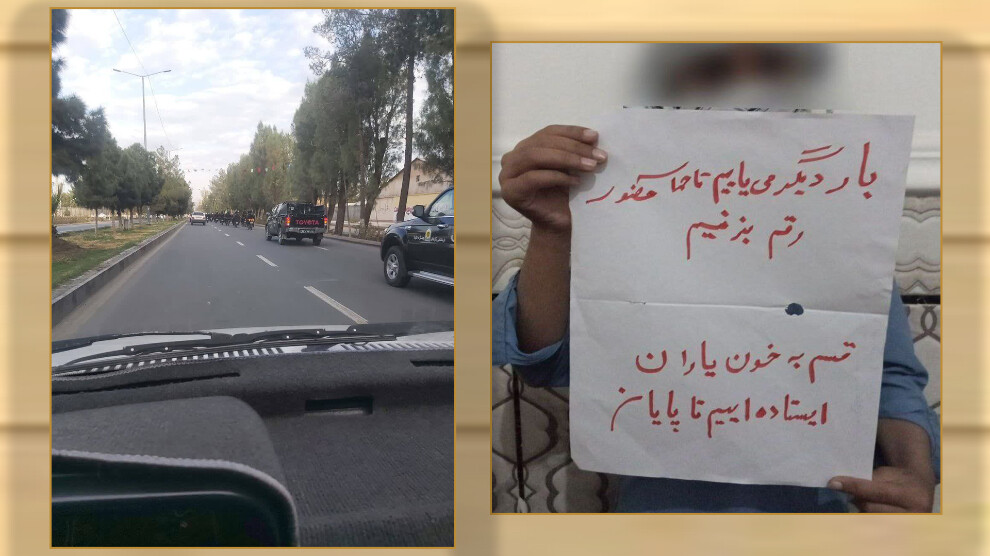 TOYOTA
بار دیگر می یابیم تا حضور
رقم بزنیم
قسم به خون یاران
ایستاده اییم تا پایان